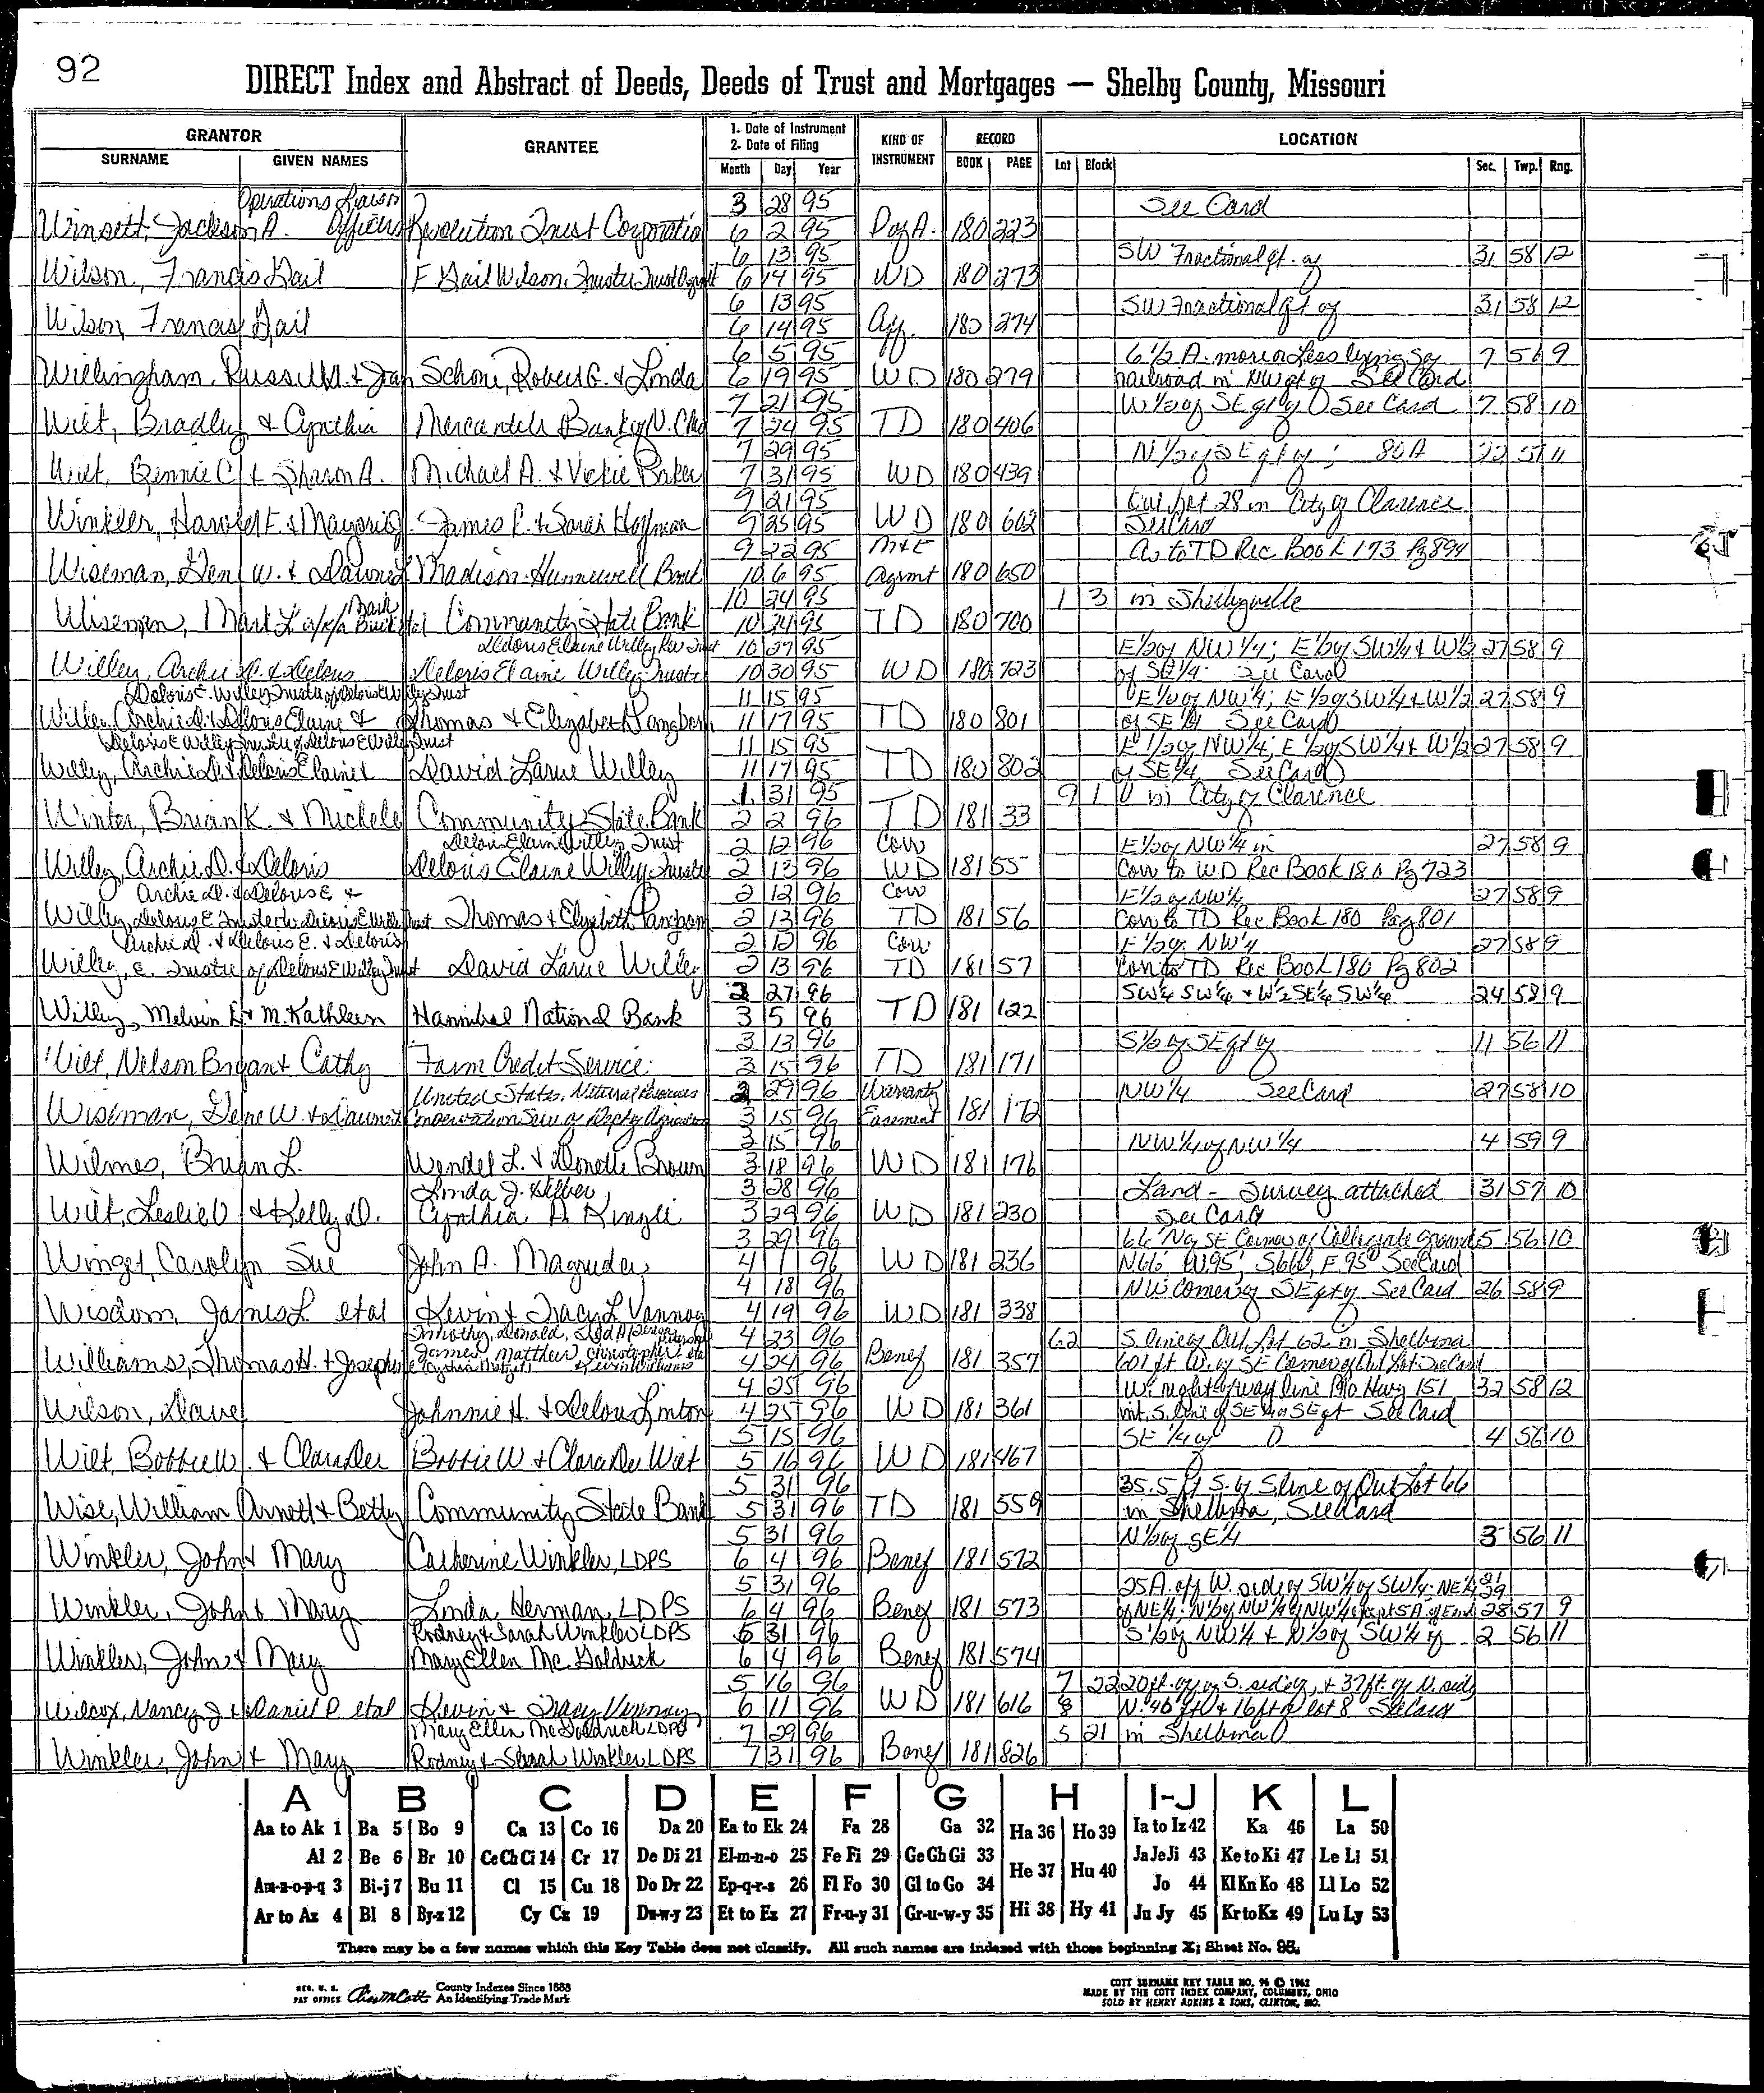 92
DIRECT Index and Abstract of Deeds, Deeds of Trust and Mortgages — Shelby County, Missouri
GRANTOR
SURNAME GIVEN NAMES
GRANTEE
1. Date of Instrument
2. Date of Filing
Month Day Year
KIND OF INSTRUMENT
RECORD
BOOK PAGE
LOCATION
Lot Block Sec. Twp. Rng.
Operations Liaison 3 28 95 See Card
Winsett, Jackson A. Officer Resolution Trust Corporation 6 2 95 P of A. 180 223
6 13 95 SW Fractional qt. of 31 58 12
Wilson, Francis Gail F Gail Wilson, Trustee Trust Agrmt 6 14 95 WD 180 273
6 13 95 SW Fractional qt of 31 58 12
Wilson, Francis Gail 6 14 95 Aff. 180 274
6 5 95 6 1/2 A. more or Less lying S of 7 56 9
Willingham, Russell M. & Jan Schone, Robert G. & Linda 6 19 95 WD 180 279 railroad in NW qt of See Card
7 21 95 W 1/2 of SE qt of See Card 7 58 10
Wilt, Bradley & Cynthia Mercantile Bank of N. C 7 24 95 TD 180 406
7 29 95 N 1/2 of SE qt of ; 80 A 57 11
Wilt, Bennie C & Sharon A. Michael A. & Vickie Baker 7 31 95 WD 180 439
9 21 95 Out Lot 28 in City of Clarence
Winkler, Harold E & Marjorie James P. & Sarai Hoffman 9 25 95 WD 180 602 See Card
9 22 95 M&E As to TD Rec Book 173 Pg 894
Wiseman, Gene W. & Dawne Madison-Hunnewell Bank 10 6 95 Agrmt 180 650
Mark 10 24 95 1 3 in Shelbyville
Wiseman, Mark L a/k/a Community State Bank 10 24 95 TD 180 700
Deloris Elaine Willey Rev Trust 10 27 95 E 1/2 of NW 1/4; E 1/2 of SW 1/4 & W 1/2 27 58 9
Willey, Archie D. & Deloris Deloris Elaine Willey Trustee 10 30 95 WD 180 723 of SE 1/4 See Card
Deloris E. Willey Trustee of Deloris E Willey Trust 11 15 95 E 1/2 of NW 1/4; E 1/2 of SW 1/4 & W 1/2 27 58 9
Willey, Archie D. & Deloris Elaine & Thomas & Elizabeth Pangborn 11 17 95 TD 180 801 of SE 1/4 See Card
Deloris E Willey Trustee of Deloris E Willey Trust 11 15 95 E 1/2 of NW 1/4; E 1/2 of SW 1/4 & W 1/2 27 58 9
Willey, Archie D. & Deloris Elaine & David Larue Willey 11 17 95 TD 180 802 of SE 1/4 See Card
1 31 95 9 1 in City of Clarence
Winter, Brian K. & Michele Community State Bank 2 2 96 TD 181 33
Deloris Elaine Willey Trust 2 12 96 Corr E 1/2 of NW 1/4 in 27 58 9
Willey, Archie D. & Deloris Deloris Elaine Willey Trustee 2 13 96 WD 181 55 Corr to WD Rec Book 180 Pg 723
Archie D. & Deloris E & 2 12 96 Corr E 1/2 of NW 1/4 27 58 9
Willey, Deloris E Trustee to Deloris E Willey Trust Thomas & Elizabeth Pangborn 2 13 96 TD 181 56 Corr to TD Rec Book 180 Pag 801
Archie D. & Deloris E. & Deloris 2 12 96 Corr E 1/2 of NW 1/4 27 58 9
Willey, E. Trustee of Deloris E Willey Trust David Larue Willey 2 13 96 TD 181 57 Corr to TD Rec Book 180 Pg 802
2 27 96 SW 1/4 SW 1/4 & W 1/2 SE 1/4 SW 1/4 24 58 9
Willey, Melvin L & M. Kathleen Hannibal National Bank 3 5 96 TD 181 122
3 13 96 S 1/2 of SE qt of 11 56 11
Wilt, Nelson Bryan & Cathy Farm Credit Service 3 15 96 TD 181 171
United States, Natural Resources 2 29 96 Warranty NW 1/4 See Card 27 58 10
Wiseman, Gene W. & Dawne Conservation Serv of Dept of Agriculture 3 15 96 Easement 181 172
3 15 96 NW 1/4 of NW 1/4 4 59 9
Wilmes, Brian L. Wendel L. & Donette Brown 3 18 96 WD 181 176
Linda J. 3 28 96 Land - Survey attached 31 57 10
Wilt, Leslie O & Kelly D. Cynthia A 3 29 96 WD 181 230 See Card
3 29 96 66' N of SE Corner of Collegiate Ground 5 56 10
Winget, Carolyn Sue John A. Magruder 4 1 96 WD 181 236 N66' W95' S66', E 95' See Card
4 18 96 NW Corner of SE qt of See Card 26 58 9
Wisdom, James L. etal Kevin & Tracy L Vannoy 4 19 96 WD 181 338
Timothy, Donald, 4 23 96 62 S. line of Out Lot 62 in Shelbina
Williams, Thomas H. & Josephine James Matthew Christopher 4 24 96 Benef 181 357 601 ft W. of SE Corner of Out Lot See Card
4 25 96 W. right of way line Mo Hwy 151 32 58 12
Wilson, Dave Johnnie H. & Delois Linton 4 25 96 WD 181 361 int. S. line of SE 1/4 of SE qt See Card
5 15 96 SE 1/4 of 4 56 10
Wilt, Bobbie W. & Clara Dee Bobbie W & Clara Dee Wilt 5 16 96 WD 181 467
5 31 96 35.5 ft S. of S. line of Out Lot 66
Wise, William Arnett & Betty Community State Bank 5 31 96 TD 181 559 in Shelbina, See Card
5 31 96 N 1/2 of SE 1/4 3 56 11
Winkler, John & Mary Catherine Winkler, LDPS 6 4 96 Benef 181 572
5 31 96 25 A. off W. side of SW 1/4 of SW 1/4; NE 1/4
Winkler, John & Mary Linda Herman, LDPS 6 4 96 Benef 181 573 of NE 1/4; N 1/2 of NW 1/4 of NW 1/4 except 5 A. of End 28 57 9
Rodney & Sarah Winkler LDPS 5 31 96 S 1/2 of NW 1/4 & N 1/2 of SW 1/4 of 2 56 11
Winkler, John & Mary Mary Ellen Mc Goldrick 6 4 96 Benef 181 574
5 16 96 7 22 20 ft. of S. side of, & 37 ft. of N. side
Wilcox, Nancy J & Daniel P etal Kevin & Tracy Vannoy 6 11 96 WD 181 616 8 N. 40 ft & 16 ft of lot 8 See Card
Mary Ellen McGoldrick LDPS 7 29 96 5 21 in Shelbina
Winkler, John & Mary Rodney & Sarah Winkler LDPS 7 31 96 Benef 181 826
A B C D E F G H I-J K L
Aa to Ak 1 Ba 5 Bo 9 Ca 13 Co 16 Da 20 Ea to Ek 24 Fa 28 Ga 32 Ha 36 Ho 39 Ia to Iz 42 Ka 46 La 50
Al 2 Be 6 Br 10 Ce Ch Ci 14 Cr 17 De Di 21 El-m-n-o 25 Fe Fi 29 Ge Gh Gi 33 He 37 Hu 40 Ja Je Ji 43 Ke to Ki 47 Le Li 51
Am-n-o-p-q 3 Bi-j 7 Bu 11 Cl 15 Cu 18 Do Dr 22 Ep-q-r-s 26 Fl Fo 30 Gl to Go 34 Jo 44 Kl Kn Ko 48 Ll Lo 52
Ar to Az 4 Bl 8 By-z 12 Cy Cz 19 Du-w-y 23 Et to Ez 27 Fr-u-y 31 Gr-u-w-y 35 Hi 38 Hy 41 Ju Jy 45 Kr to Kz 49 Lu Ly 53
There may be a few names which this Key Table does not classify. All such names are indexed with those beginning X; Sheet No. 95.
REG. U. S. PAT OFFICE County Indexes Since 1888
An Identifying Trade Mark
COTT SURNAME KEY TABLE NO. 96 © 1962
MADE BY THE COTT INDEX COMPANY, COLUMBUS, OHIO
SOLD BY HENRY ADKINS & SONS, CLINTON, MO.